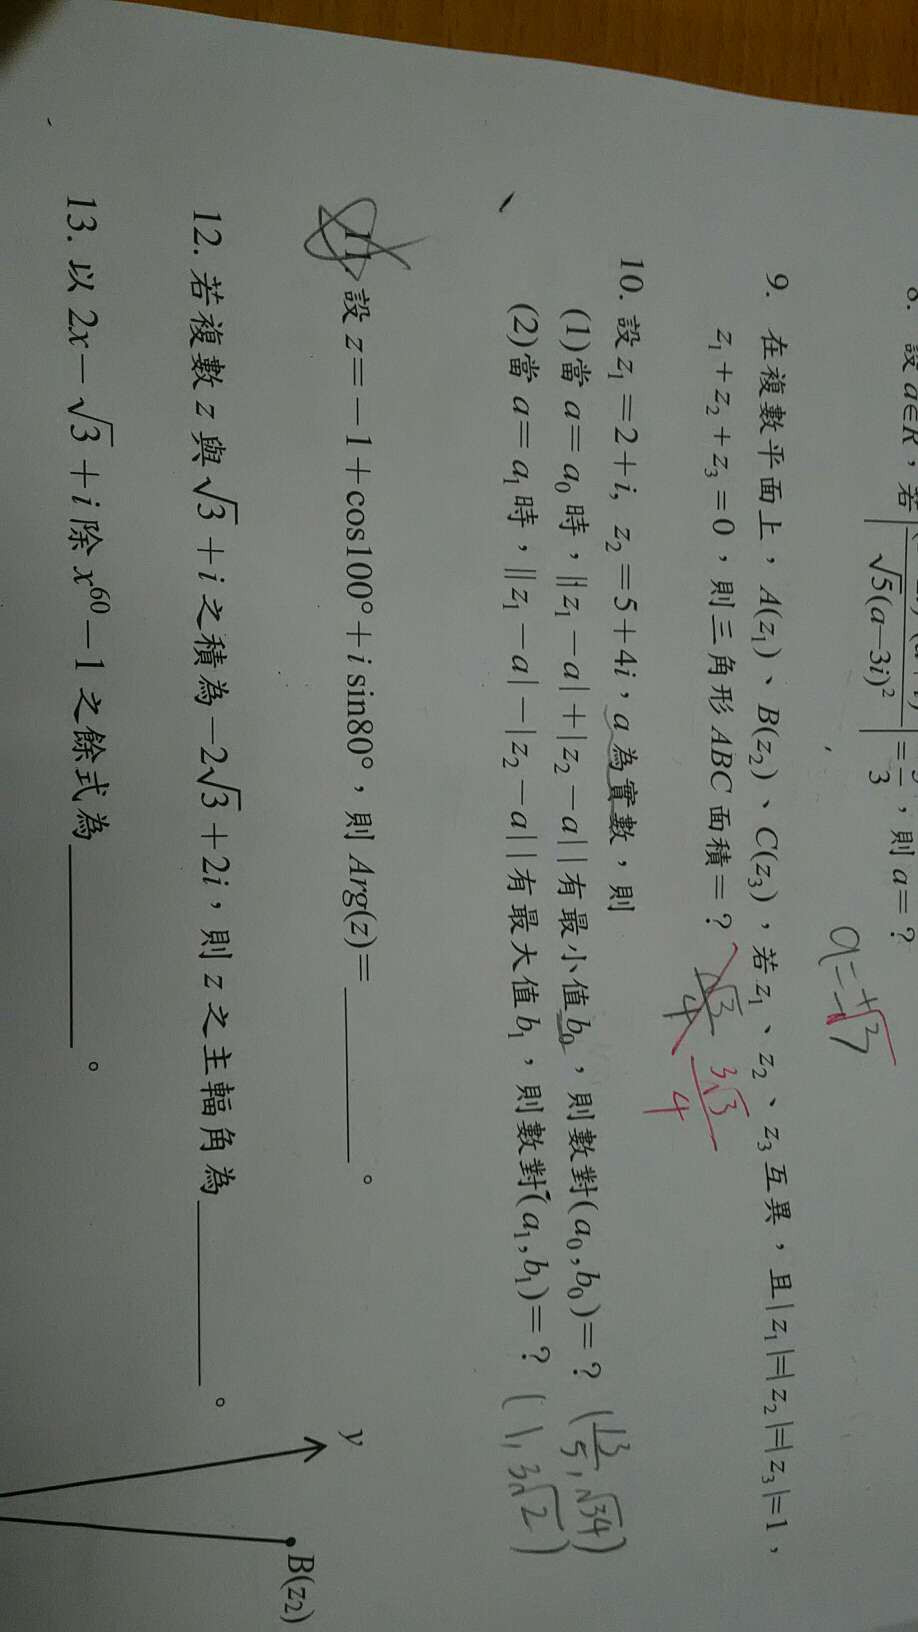 8. 設 a∈R，若
√5(a−3i)²
=
3
，則 a=？
a=±√3
9. 在複數平面上，A(z₁)、B(z₂)、C(z₃)，若 z₁、z₂、z₃ 互異，且|z₁|=|z₂|=|z₃|=1，
z₁+z₂+z₃=0，則三角形 ABC 面積=？ √3/4 3√3/4
10. 設 z₁=2+i, z₂=5+4i，a 為實數，則
(1)當 a=a₀ 時，||z₁−a|+|z₂−a||有最小值 b₀，則數對(a₀,b₀)=？ (13/5, √34)
(2)當 a=a₁ 時，||z₁−a|−|z₂−a||有最大值 b₁，則數對(a₁,b₁)=？ (1, 3√2)
11. 設 z=−1+cos100°+i sin80°，則 Arg(z)=＿＿＿＿。
12. 若複數 z 與 √3+i 之積為−2√3+2i，則 z 之主輻角為＿＿＿＿。
13. 以 2x−√3+i 除 x⁶⁰−1 之餘式為＿＿＿＿。
y
B(z₂)